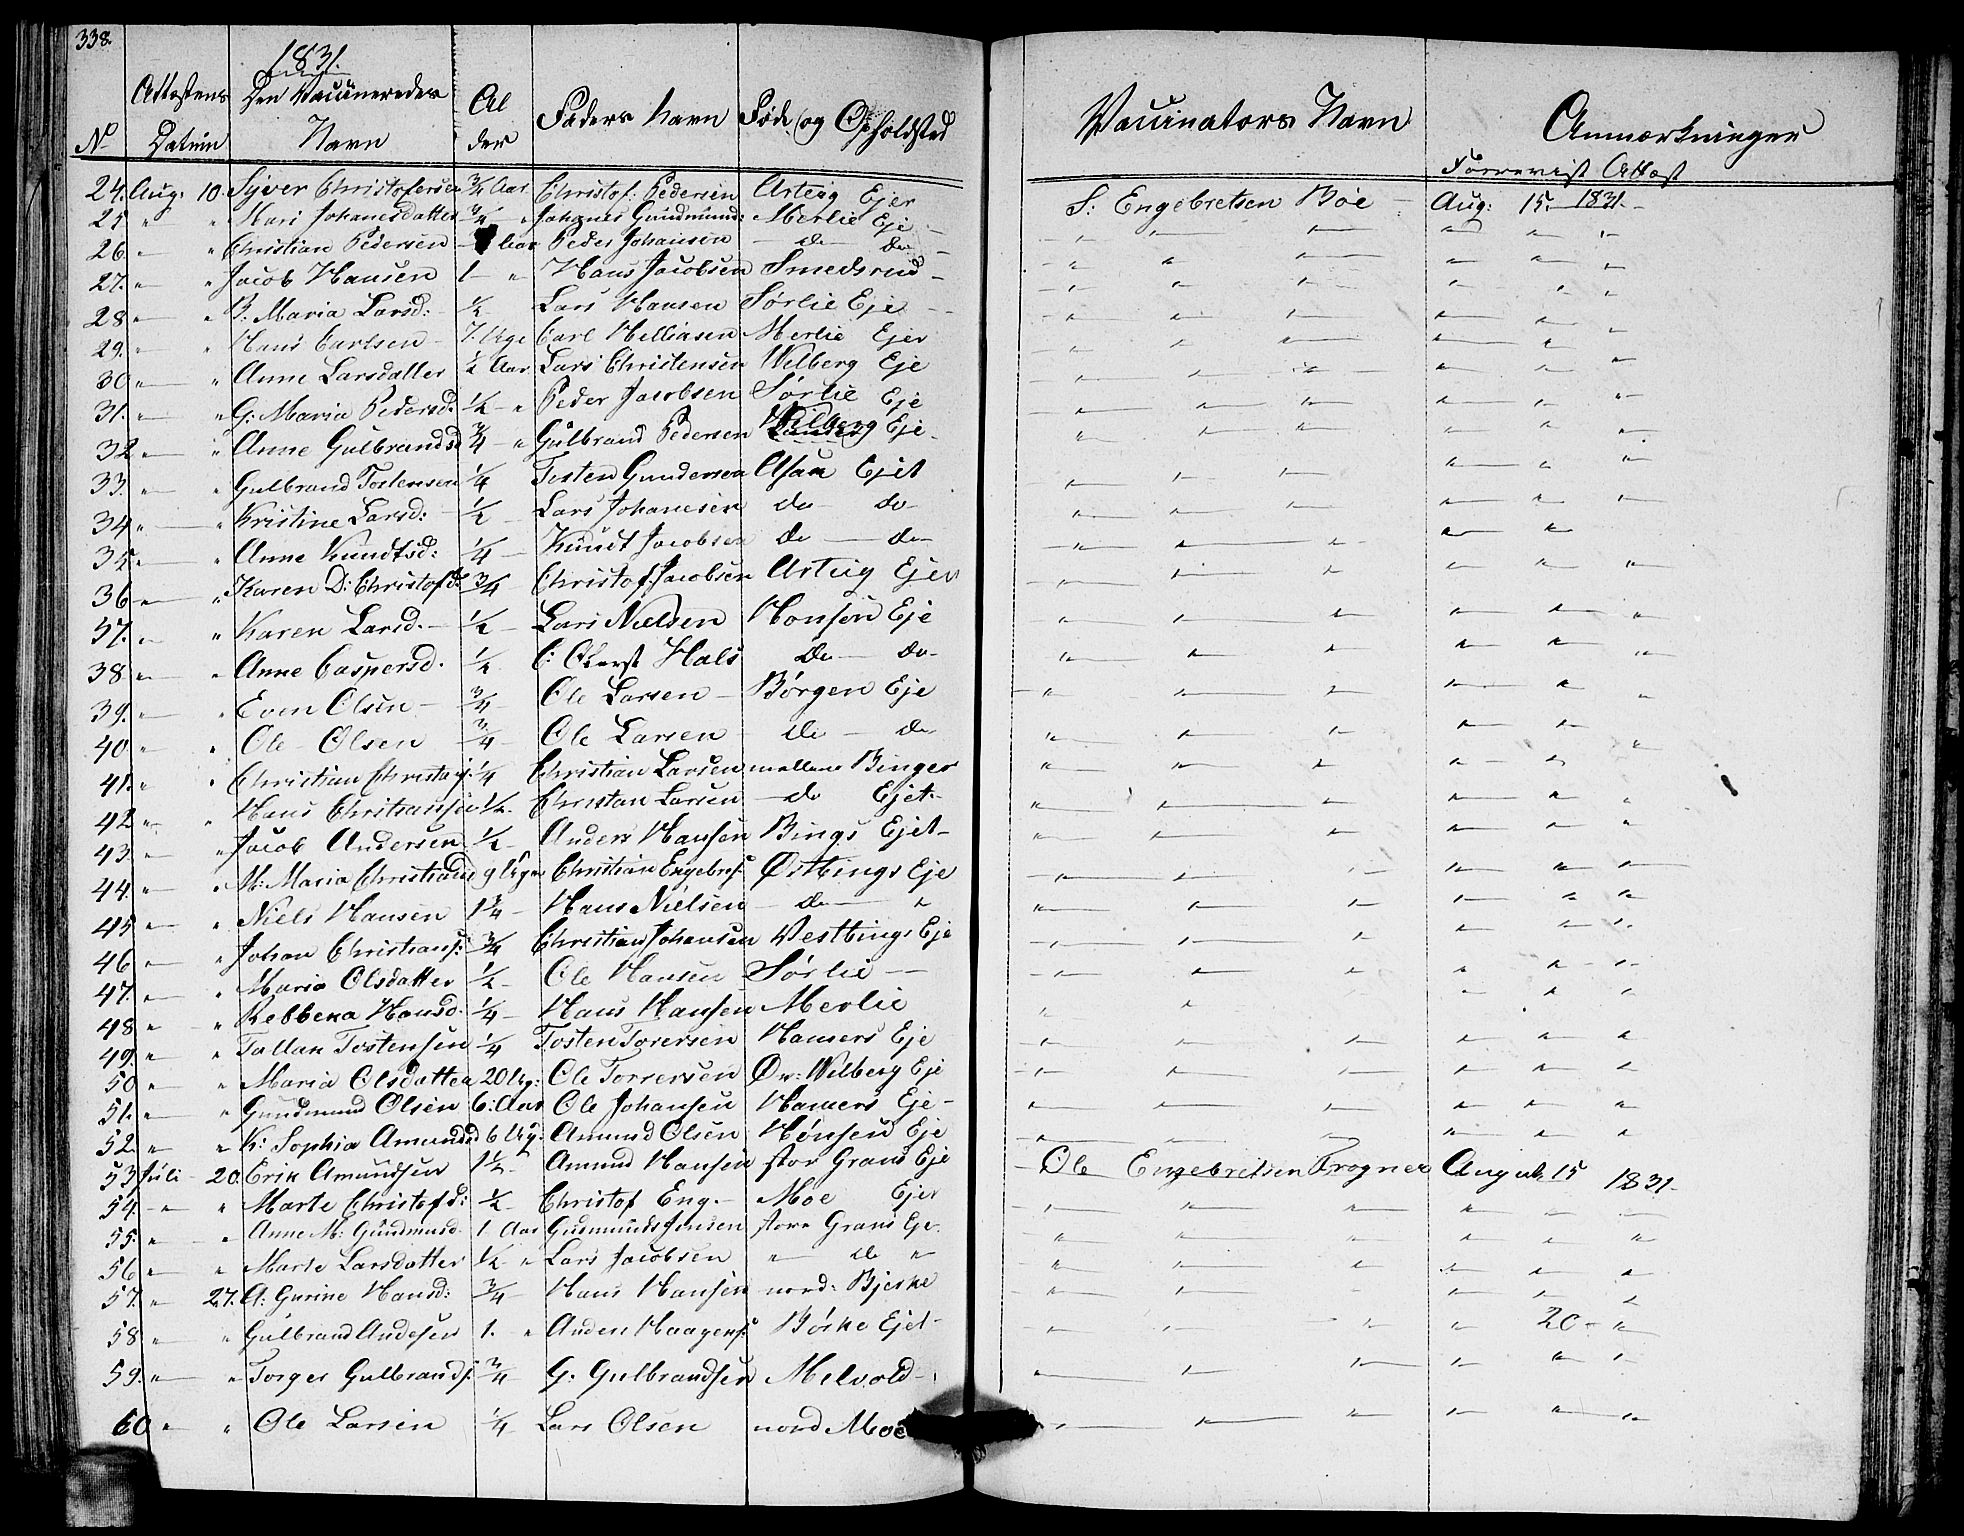 338.
1831.
No Attestens Datum Den Vaccineredes Navn Al der Faders Navn Føde og Opholdsted Vaccinators Navn Anmærkninger
Forrevist Attest
24. Aug: 10. Syver Christofersen 3/4 Aar Christof: Pedersen Arteig Ejer S: Engebretsen Böe - Aug: 15. 1831.-
25 " " Mari Johanesdatter 3/4 " Johanes Gundmund: Merlie Eje - " " " " " "
26. " " Christian Pedersen Aar Peder Johansen - do do " " " " " "
27. " " Jacob Hansen 1 - " Hans Jacobsen Smedsrud - " " " " " "
28 " " B: Maria Larsd: 1/2 Lars Hansen Sørlie Eje - " " " " " "
29. " " Hans Carlsen - 7. Uge Carl Helliasen Merlie Ejer " " " " " "
30 " " Anne Larsdatter 1/2 Aar Lars Christensen Wilberg Eje " " " " " "
31. " " G: Maria Pedersd: 1/2 - " Peder Jacobsen Sørlie Eje " " " " " "
32 " " Anne Gulbrandsd 3/4 - " Gulbrand Pedersen Wilberg Eje - " " " " " "
33. " " Gulbrand Tostensen 1/4 Tosten Gundersen Asak Ejet " " " " " "
34 " " Kristine Larsd: 1/2 - Lars Johanesen do do " " " " " "
35 " " Anne Knudtsd: 1/4 - Knudt Jacobsen do - do " " " " "
36 " " Karen D: Christofd: 3/4 Christof: Jacobsen Arteig Ejer " " " " " "
37. " " Karen Larsd. - 1/2 - Lars Nielsen Hønsen Eje " " " " " "
38 " " Anne Caspersd. 1/2 C: Oberst Hals do do " " " " " "
39. " " Even Olsen - 3/4 Ole Larsen - Børgen Eje " " " " " "
40 " " Ole Olsen 3/4 - Ole Larsen do - do " " " " " "
41. " " Christian Christians: 1/4 Christian Larsen mellem Binger " " " " "
42 " " Hans Christiansen 1/2. Christian Larsen - do Ejet - " " " " " "
43. " " Jacob Andersen 1/2 - Anders Hansen Bings Ejet - " " " " " "
44. " " M: Maria Christiansd 9 Uger Christian Engebrs: Østbings Eje " " " " " "
45 " " Niels Hansen 1 1/4 - Hans Nielsen - do " " " " " " "
46 " " Johan Christians: 3/4 Christian Johansen Vestbings Eje " " " " " "
47. " " Maria Olsdatter 1/2 - Ole Hansen Sørlie - " " " " " "
48 " " Rebbeka Hansd. 1/4 - Hans Hansen Merlie " " " " "
49. " " Tallak Tostensen 1/4 Tosten Torersen Hamers Eje " " " " "
50 " " Maria Olsdatter 20 Ug: Ole Torrersen Øv: Wilberg Eje " " " " " "
51. " " Gundmund Olsen 6: Aar Ole Johansen Hamers Eje - " " " " " "
52. " " K: Sophia Amundsd 6 Ug: Amund Olsen Hønsen Eje " " " " " "
53 Juli - 20. Erik Amundsen 1 1/2 - Amund Hansen stor Grans Eje - Ole Engebretsen Frogner August 15 1831 -
54. " " Marte Christofsd: 1/2 - Christof Eng. - Moe Ejer " " " " " "
55. " " Anne M: Gundmund 1. Aar Gudmund Jensen store Grans Eje. " " " " " "
56 " " Marte Larsdatter 1/2 - " Lars Jacobsen " do " " " " " " "
57. " 27. A: Gurine Hansd: 3/4 Hans Hansen nord: Bjerke " " " " " "
58 " " Gulbrand Andesen 1. " Anden Haagens: Børke Ejet - " " " " 20 - "
59. " " Torger Gulbrands: 3/4 G: Gulbrandsen Melvold - " " " " " "
60 " " Ole Larsen 1/4 Lars Olsen nord Moe " " " " " "